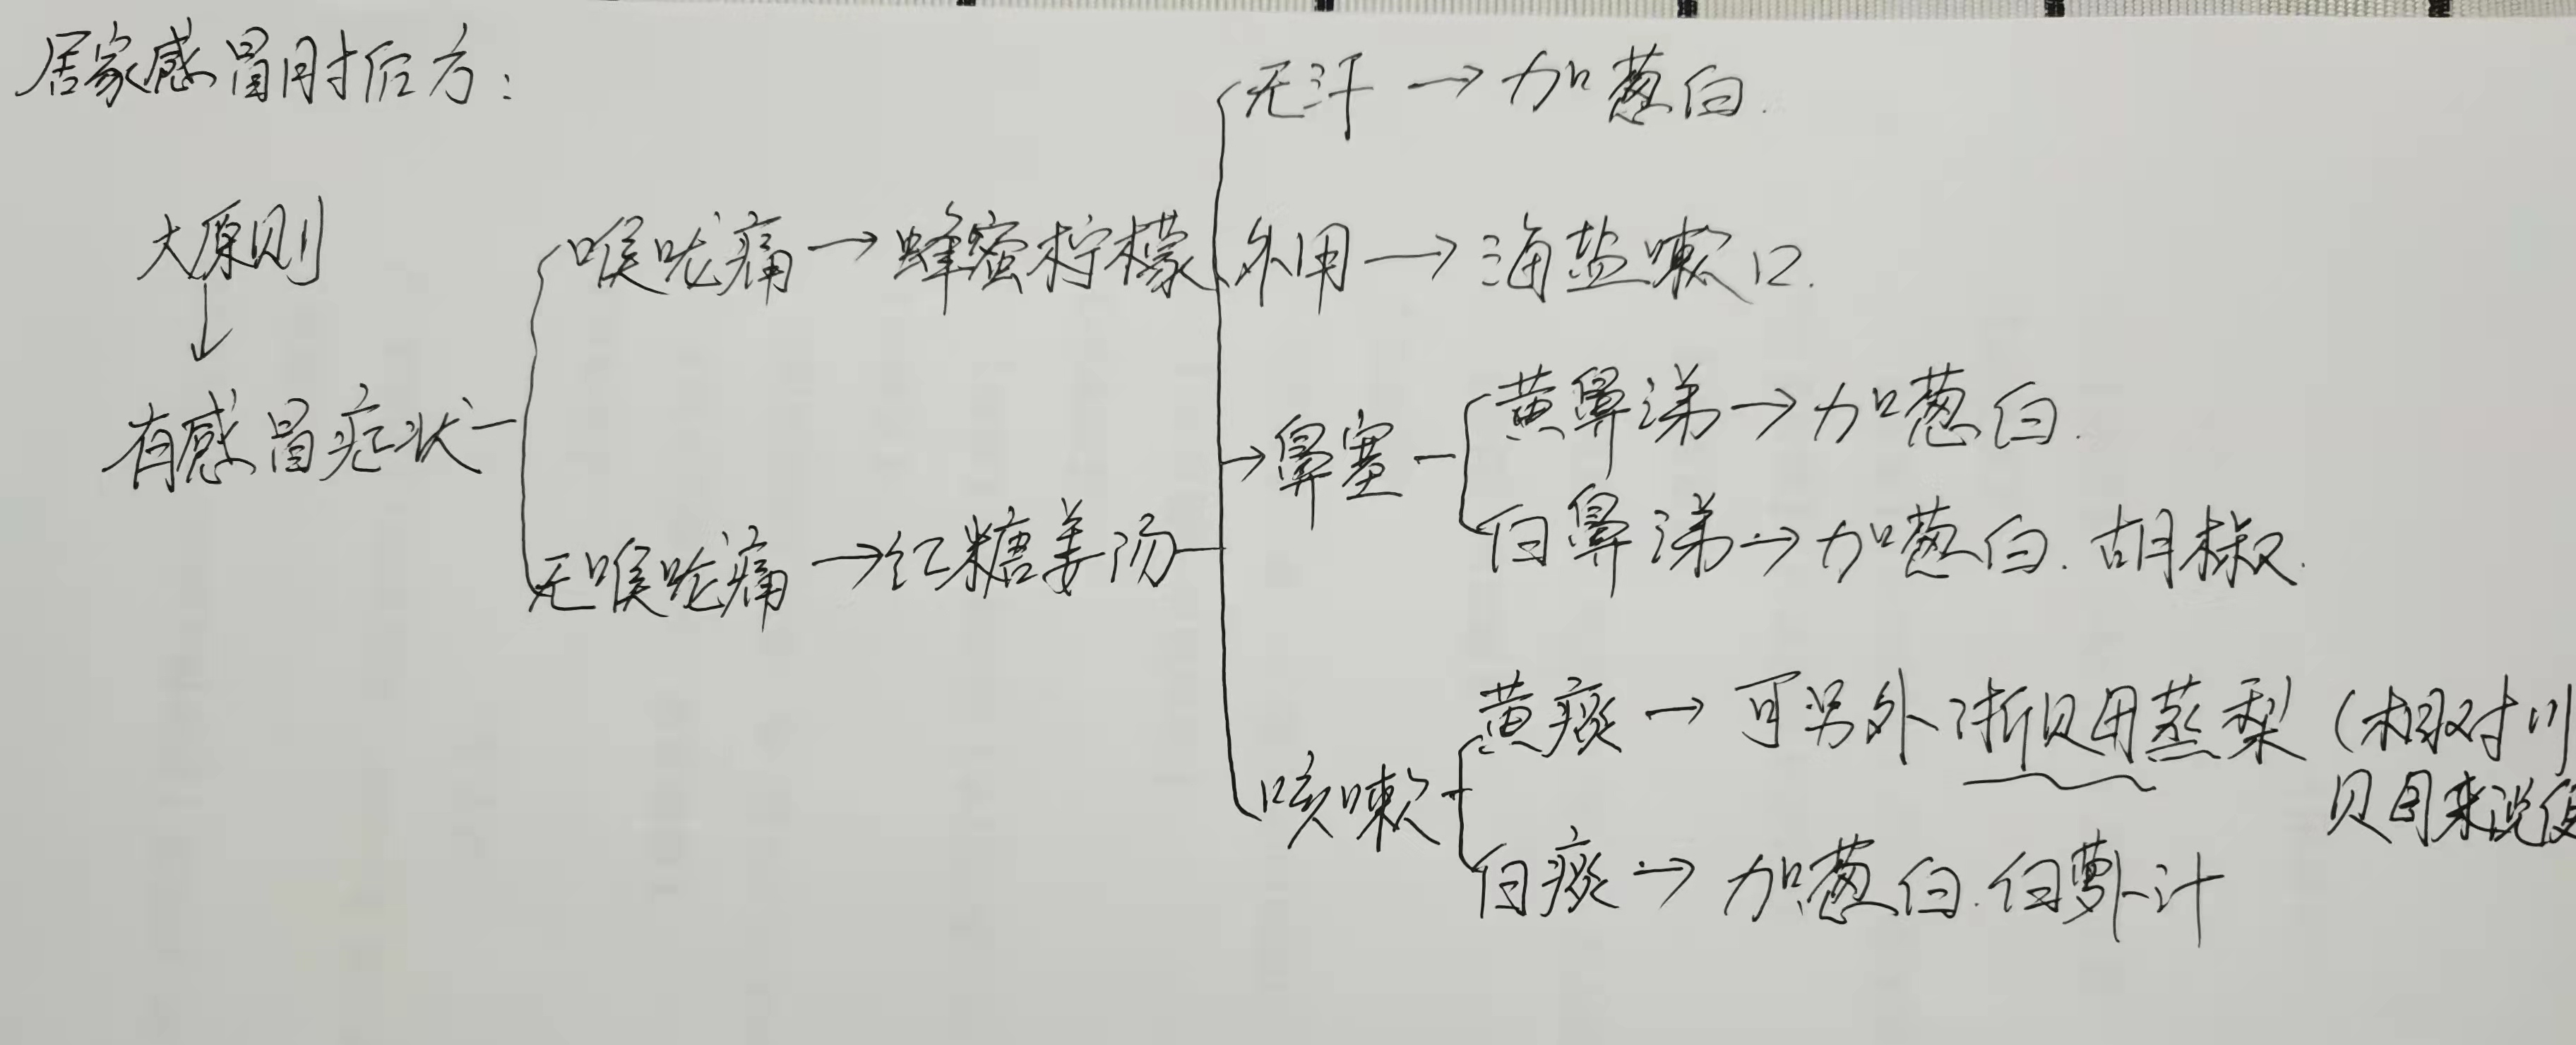 居家感冒肘后方：
大原则
↓
有感冒症状
喉咙痛→蜂蜜柠檬
无喉咙痛→红糖姜汤
无汗→加葱白.
外用→海盐嗽口.
→鼻塞
黄鼻涕→加葱白.
白鼻涕→加葱白.胡椒.
咳嗽
黄痰→可另外浙贝用蒸梨（相对川
贝母来说便
白痰→加葱白.白萝卜汁